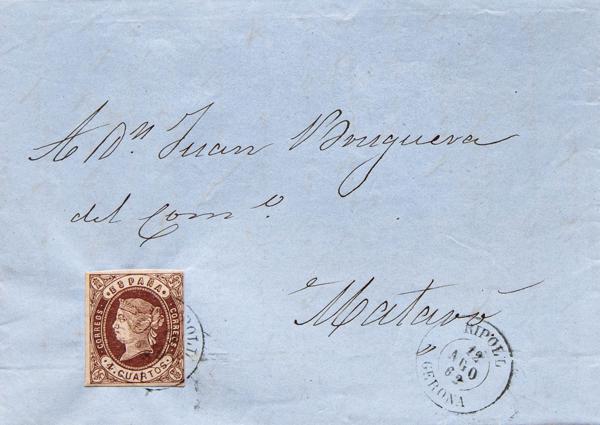 A Dn. Juan Bruguera
del Com.o
Mataró
ESPAÑA
CORREOS
CORREOS
4. CUARTOS.
RIPOLL
AGO
GERONA